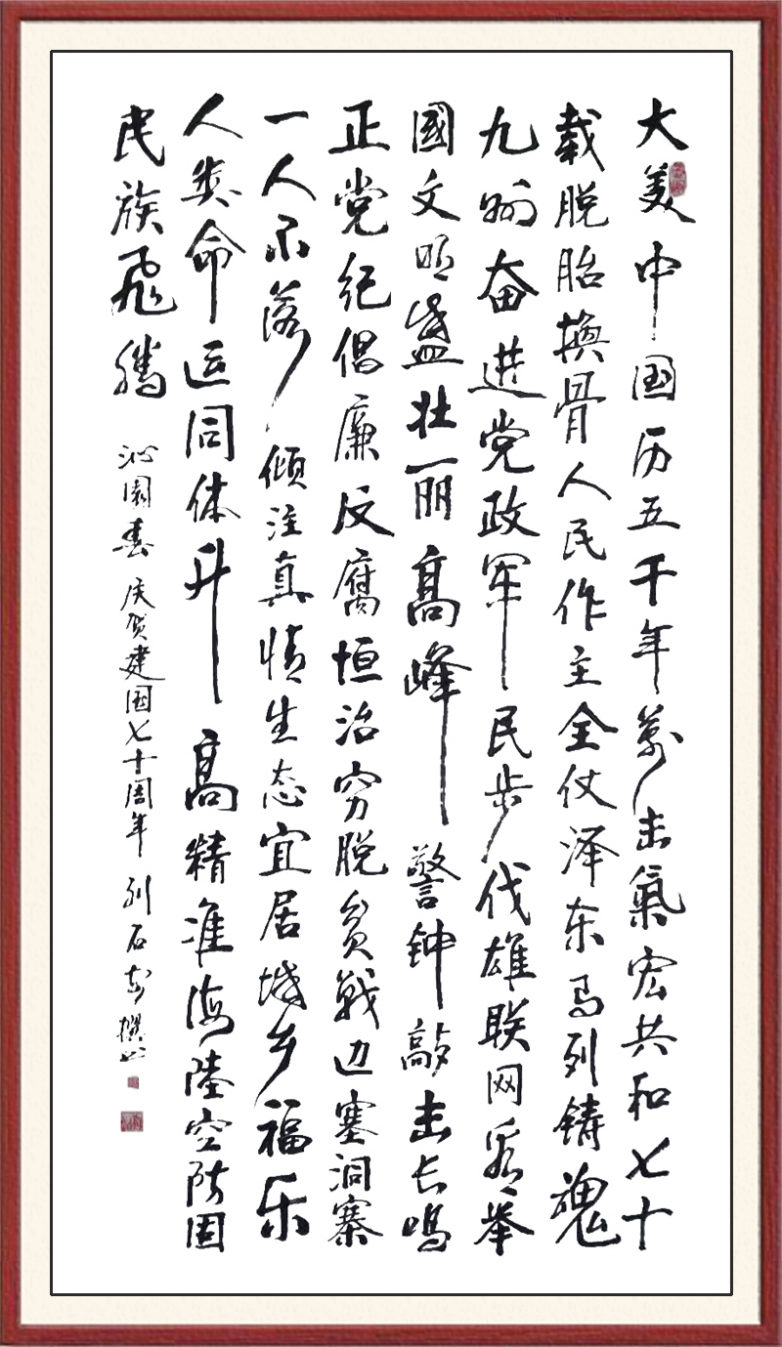 大美中国历五千年万击氣宏共和七十
载脱胎換骨人民作主全仗泽东马列铸魂
九州奋进党政军民步伐雄联网
國文明盛壮丽髙峰警钟敲击长鸣
正党纪倡廉反腐恒治穷脱贫戰边塞洞寨
一人不落倾注真情生态宜居城乡福乐
人类命运同体升髙精准海陸空防固
民族飛腾
沁園春 庆贺建国七十周年 列石